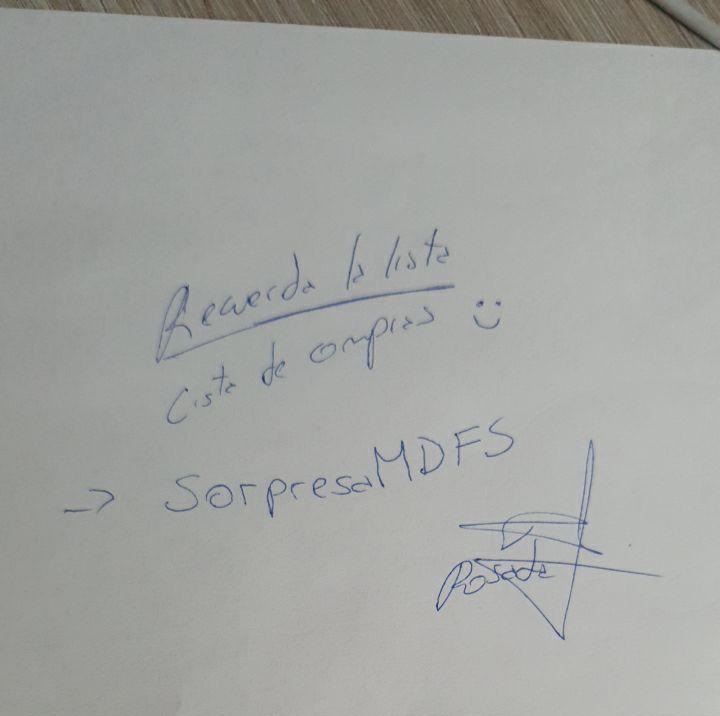 Recuerda la lista
Lista de compras
→ SorpresaMDFS
Posada